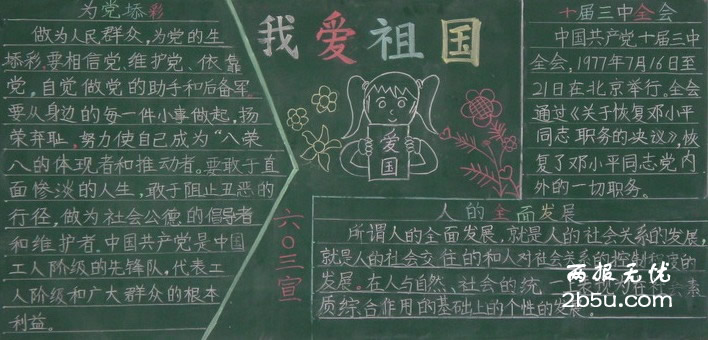 为党添彩
做为人民群众，为党的生
添彩，要相信党、维护党、依靠
党，自觉做党的助手和后备军。
要从身边的每一件小事做起，扬
荣弃耻，努力使自己成为“八荣
八的体现者和推动者。要敢于直
面惨淡的人生，敢于阻止丑恶的
行径，做为社会公德的倡导者
和维护者。中国共产党是中国
工人阶级的先锋队，代表工
人阶级和广大群众的根本
利益。
我爱祖国
爱
国
六〇三宣
十届三中全会
中国共产党十届三中
全会，1977年7月16日至
21日在北京举行。全会
通过《关于恢复邓小平
同志职务的决议》，恢
复了邓小平同志党内
外的一切职务。
人的全面发展
所谓人的全面发展，就是人的社会关系的发展，
就是人的社会交往的和人对社会关系的控制程度的
发展。在人与自然、社会的统一
质综合作用的基础上的个性的发展。
两报无忧
2b5u.com